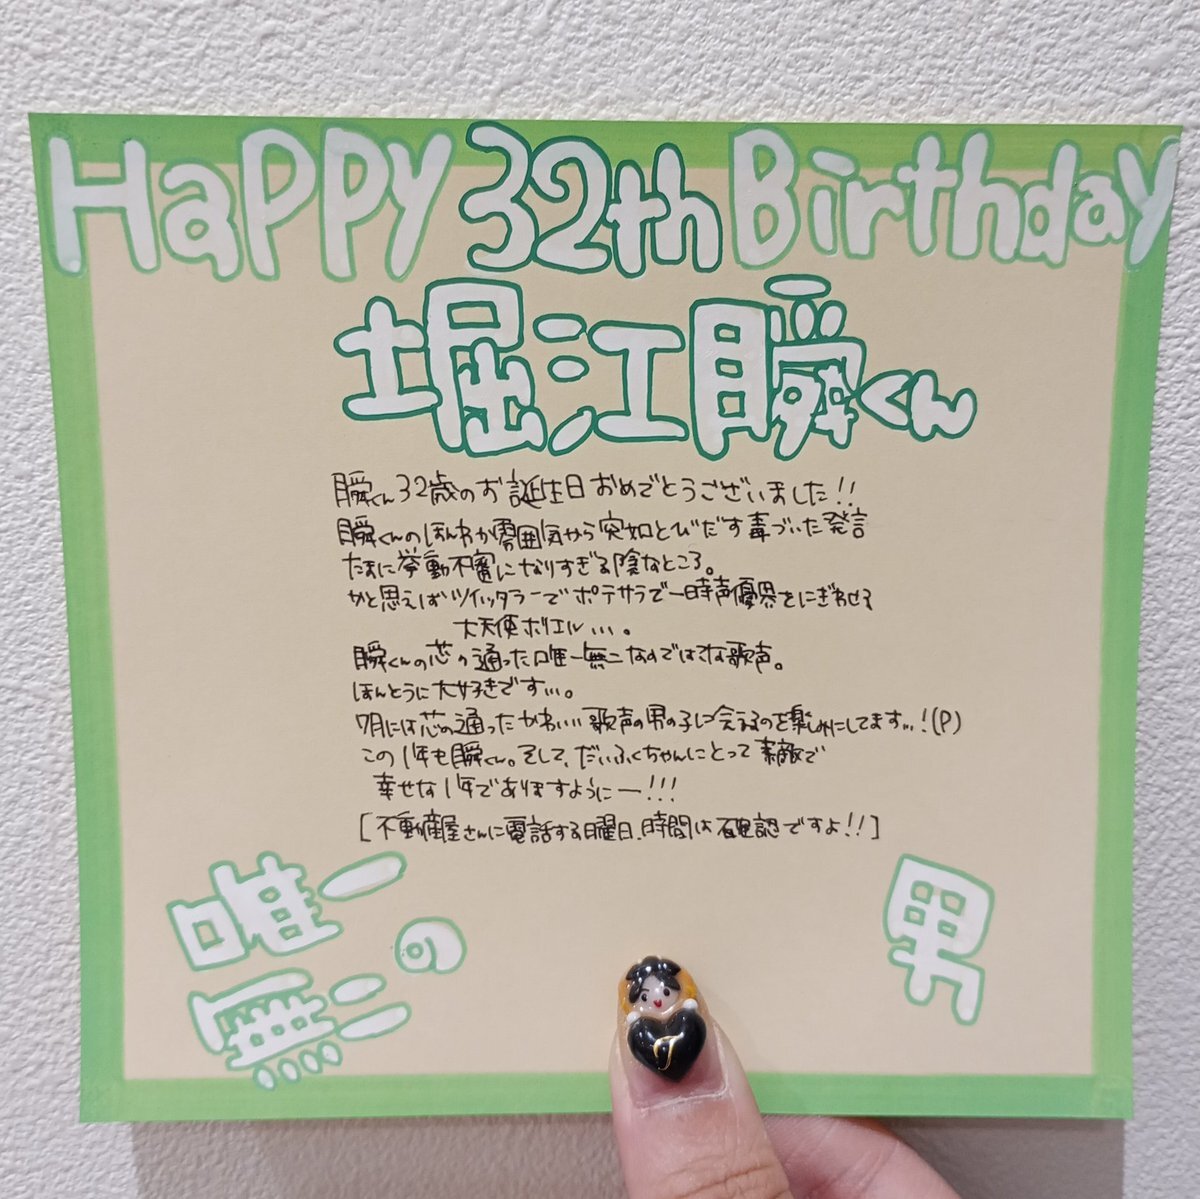 Happy 32th Birthday
堀江瞬くん
瞬くん32歳のお誕生日おめでとうございました!!
瞬くんのほんわか雰囲気から突如とびだす毒づいた発言
たまに挙動不審になりすぎる陰なところ。
かと思えばツイッタラーでポテサラで一時声優界をにぎわせる
大天使ホリエル…。
瞬くんの芯の通った唯一無二なのではてな歌声。
ほんとうに大好きです…。
7月には芯の通ったかわいい歌声の男の子に会えるのを楽しみにしてます…!(P)
この1年も瞬くん。そして、だいふくちゃんにとって素敵で
幸せな1年でありますようにー!!!
[不動産屋さんに電話する曜日、時間は確認ですよ!!]
唯一
無二の
男